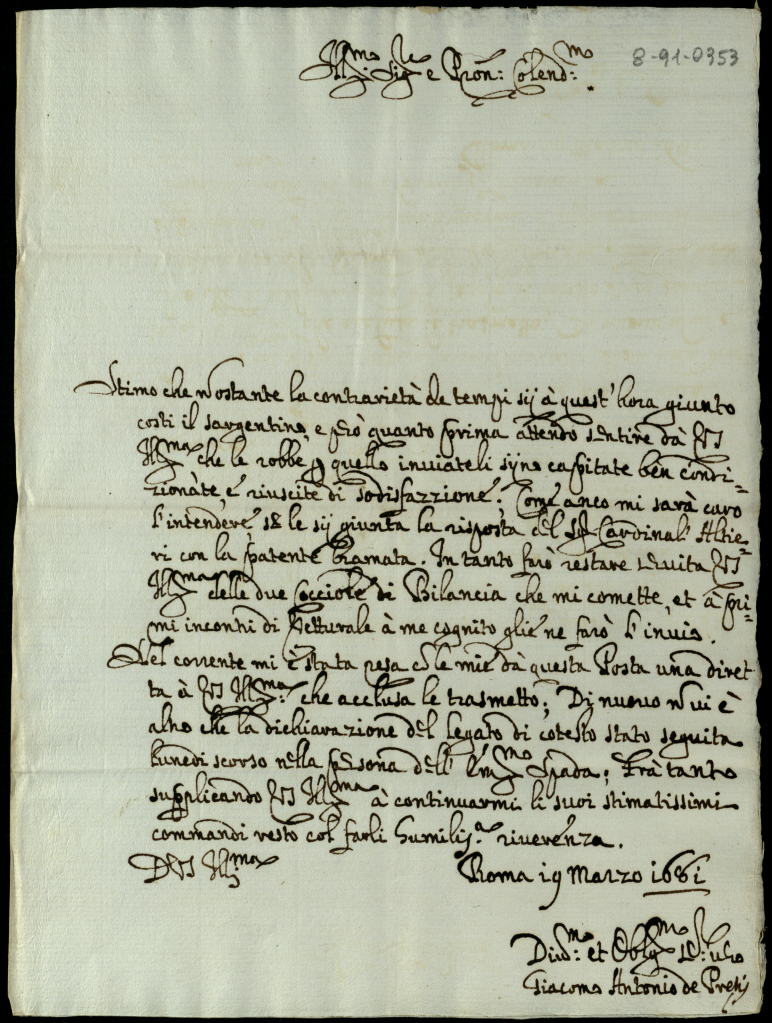 8-91-0353
Ill.mo Sig.re e Pron: Colend:mo
Stimo che nostante la contrarietà de tempi sij à quest'hora giunto
costi il sargentino, e però quanto prima attendo sentire dà VS
Ill.ma che le robbe p quello inviateli sijno capitate ben condi=
zionate, e riuscite di sodisfazzione; Come anco mi sarà caro
l'intendere, se le sij giunta la risposta del Sr Cardinal' Altie=
ri con la patente bramata. In tanto farò restare servita VS
Ill.ma delle due Cocciole di Bilancia che mi comette, et à pri=
mi incontri di Vetturale à me cognito gliè ne farò l'invio.
Del corrente mi è stata resa cō le mie dà questa Posta una diret
ta à VS Ill.ma: che acclusa le trasmetto; Di nuovo n vi è
altro che la dichiarazione del Legato di cotesto stato seguita
lunedi scorso nella persona dell' Em.mo Spada; Frà tanto
supplicando VS Ill.ma à continuarmi li suoi stimatissimi
commandi resto col farli humiliss.a riverenza.
D VS Ill.ma
Roma 19 Marzo 1681
Div.mo: et Obblig.mo Se.r: vro
Giacomo Antonio de Pretis